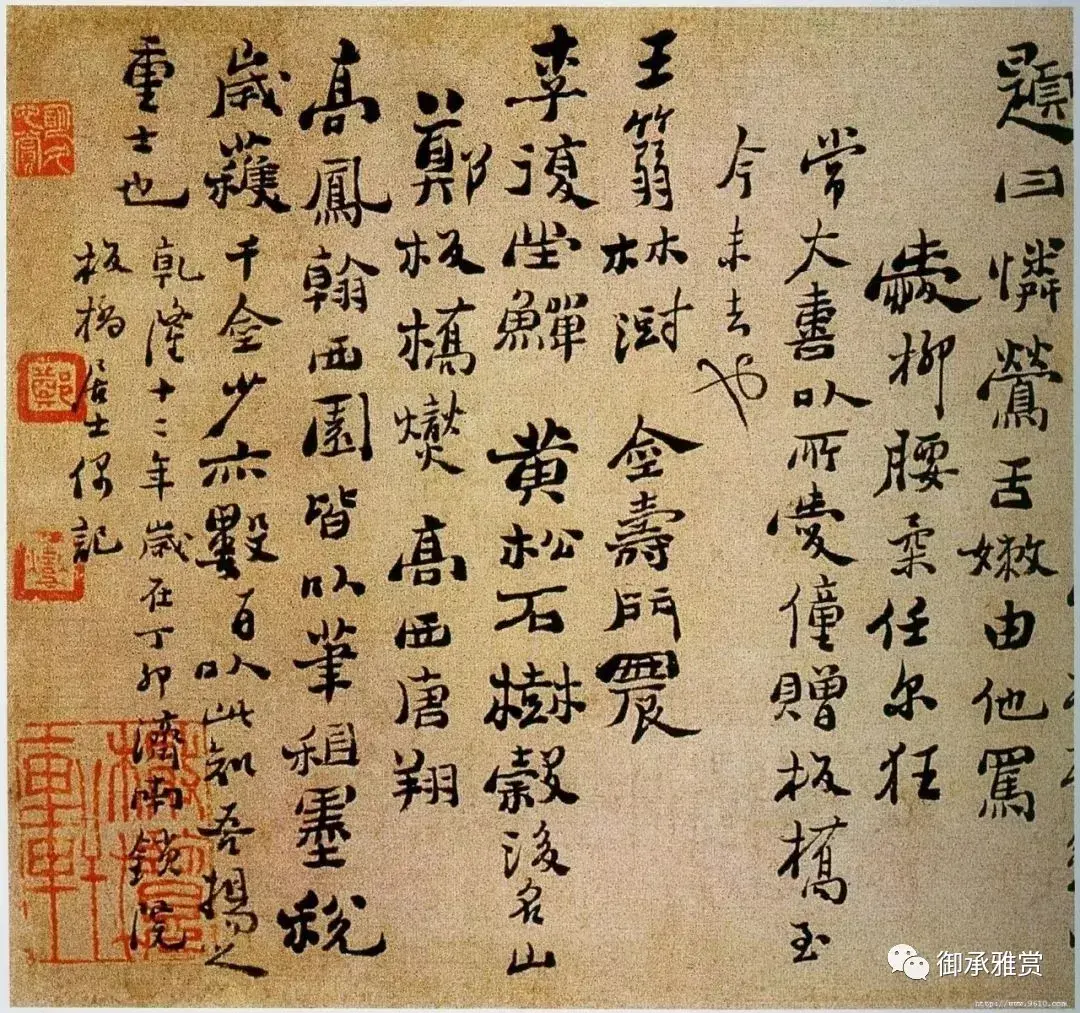 題曰憐鶯舌嫩由他罵
愛柳腰柔任尔狂
常大喜以所愛僮贈板橋至
今未去也
王篛林澍 金壽門農
李復堂鱓 黄松石樹穀後名山
鄭板橋燮 高西唐翔
高鳳翰西園皆以筆租墨稅
歲穫千金少亦數百以此知吾揚之
重士也
乾隆十二年歲在丁卯濟南鎖院
板橋居士偶記
御承雅赏
http://www.9610.com